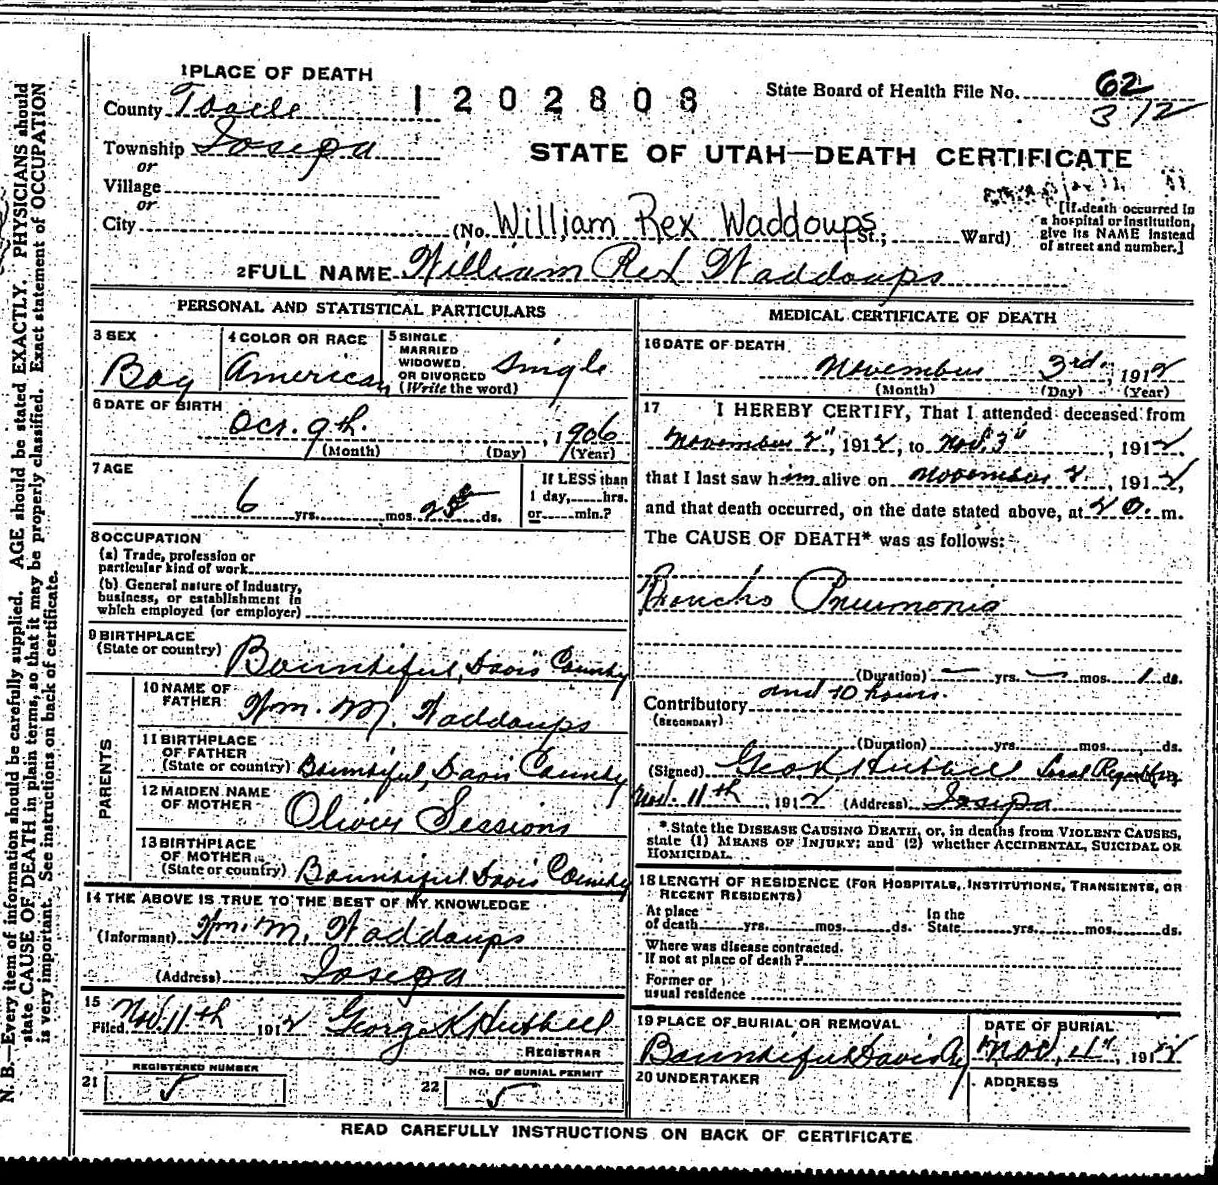 1 PLACE OF DEATH
County Tooele
1202808
State Board of Health File No. 62
312
Township Iosepa
or
Village
or
City
STATE OF UTAH—DEATH CERTIFICATE
(No. William Rex Waddoups St.; Ward)
[If death occurred in
a hospital or institution,
give its NAME instead
of street and number.]
2 FULL NAME William Rex Waddoups
PERSONAL AND STATISTICAL PARTICULARS
3 SEX
Boy
4 COLOR OR RACE
American
5 SINGLE
MARRIED
WIDOWED
OR DIVORCED
(Write the word)
Single
6 DATE OF BIRTH
Oct. 9th. , 1906
(Month) (Day) (Year)
7 AGE
6 yrs. mos. 25 ds.
If LESS than
1 day, hrs.
or min.?
8 OCCUPATION
(a) Trade, profession or
particular kind of work
(b) General nature of Industry,
business, or establishment in
which employed (or employer)
9 BIRTHPLACE
(State or country) Bountiful, Davis County
PARENTS
10 NAME OF
FATHER Wm. M. Waddoups
11 BIRTHPLACE
OF FATHER
(State or country) Bountiful, Davis County
12 MAIDEN NAME
OF MOTHER Olivia Sessions
13 BIRTHPLACE
OF MOTHER
(State or country) Bountiful Davis County
14 THE ABOVE IS TRUE TO THE BEST OF MY KNOWLEDGE
(Informant) Wm. M. Waddoups
(Address) Iosepa
15
Filed Nov. 11th 1912 George K Hubbell
REGISTRAR
21 REGISTERED NUMBER
5
22 NO. OF BURIAL PERMIT
5
MEDICAL CERTIFICATE OF DEATH
16 DATE OF DEATH
November 3rd. , 1912
(Month) (Day) (Year)
17 I HEREBY CERTIFY, That I attended deceased from
November 2", 1912, to Nov. 3" , 1912.
that I last saw him alive on November 2. , 1912,
and that death occurred, on the date stated above, at m.
The CAUSE OF DEATH* was as follows:
Broncho Pneumonia
(Duration) — yrs. — mos. 1 ds.
and 10 hours.
Contributory
(SECONDARY)
(Duration) yrs. mos. ds.
(Signed) Geo K Hubbell Local Registrar
Nov. 11th , 1912 (Address) Iosepa
* State the DISEASE CAUSING DEATH, or, in deaths from VIOLENT CAUSES,
state (1) MEANS OF INJURY; and (2) whether ACCIDENTAL, SUICIDAL OR
HOMICIDAL.
18 LENGTH OF RESIDENCE (FOR HOSPITALS, INSTITUTIONS, TRANSIENTS, OR
RECENT RESIDENTS)
At place
of death yrs. mos. ds.
In the
State yrs. mos. ds.
Where was disease contracted.
If not at place of death?
Former or
usual residence
19 PLACE OF BURIAL OR REMOVAL
Bountiful Davis Cy
DATE OF BURIAL
Nov. 4", 1912
20 UNDERTAKER
ADDRESS
READ CAREFULLY INSTRUCTIONS ON BACK OF CERTIFICATE
N. B.—Every item of information should be carefully supplied. AGE should be stated EXACTLY. PHYSICIANS should
state CAUSE OF DEATH in plain terms, so that it may be properly classified. Exact statement of OCCUPATION
is very important. See instructions on back of certificate.